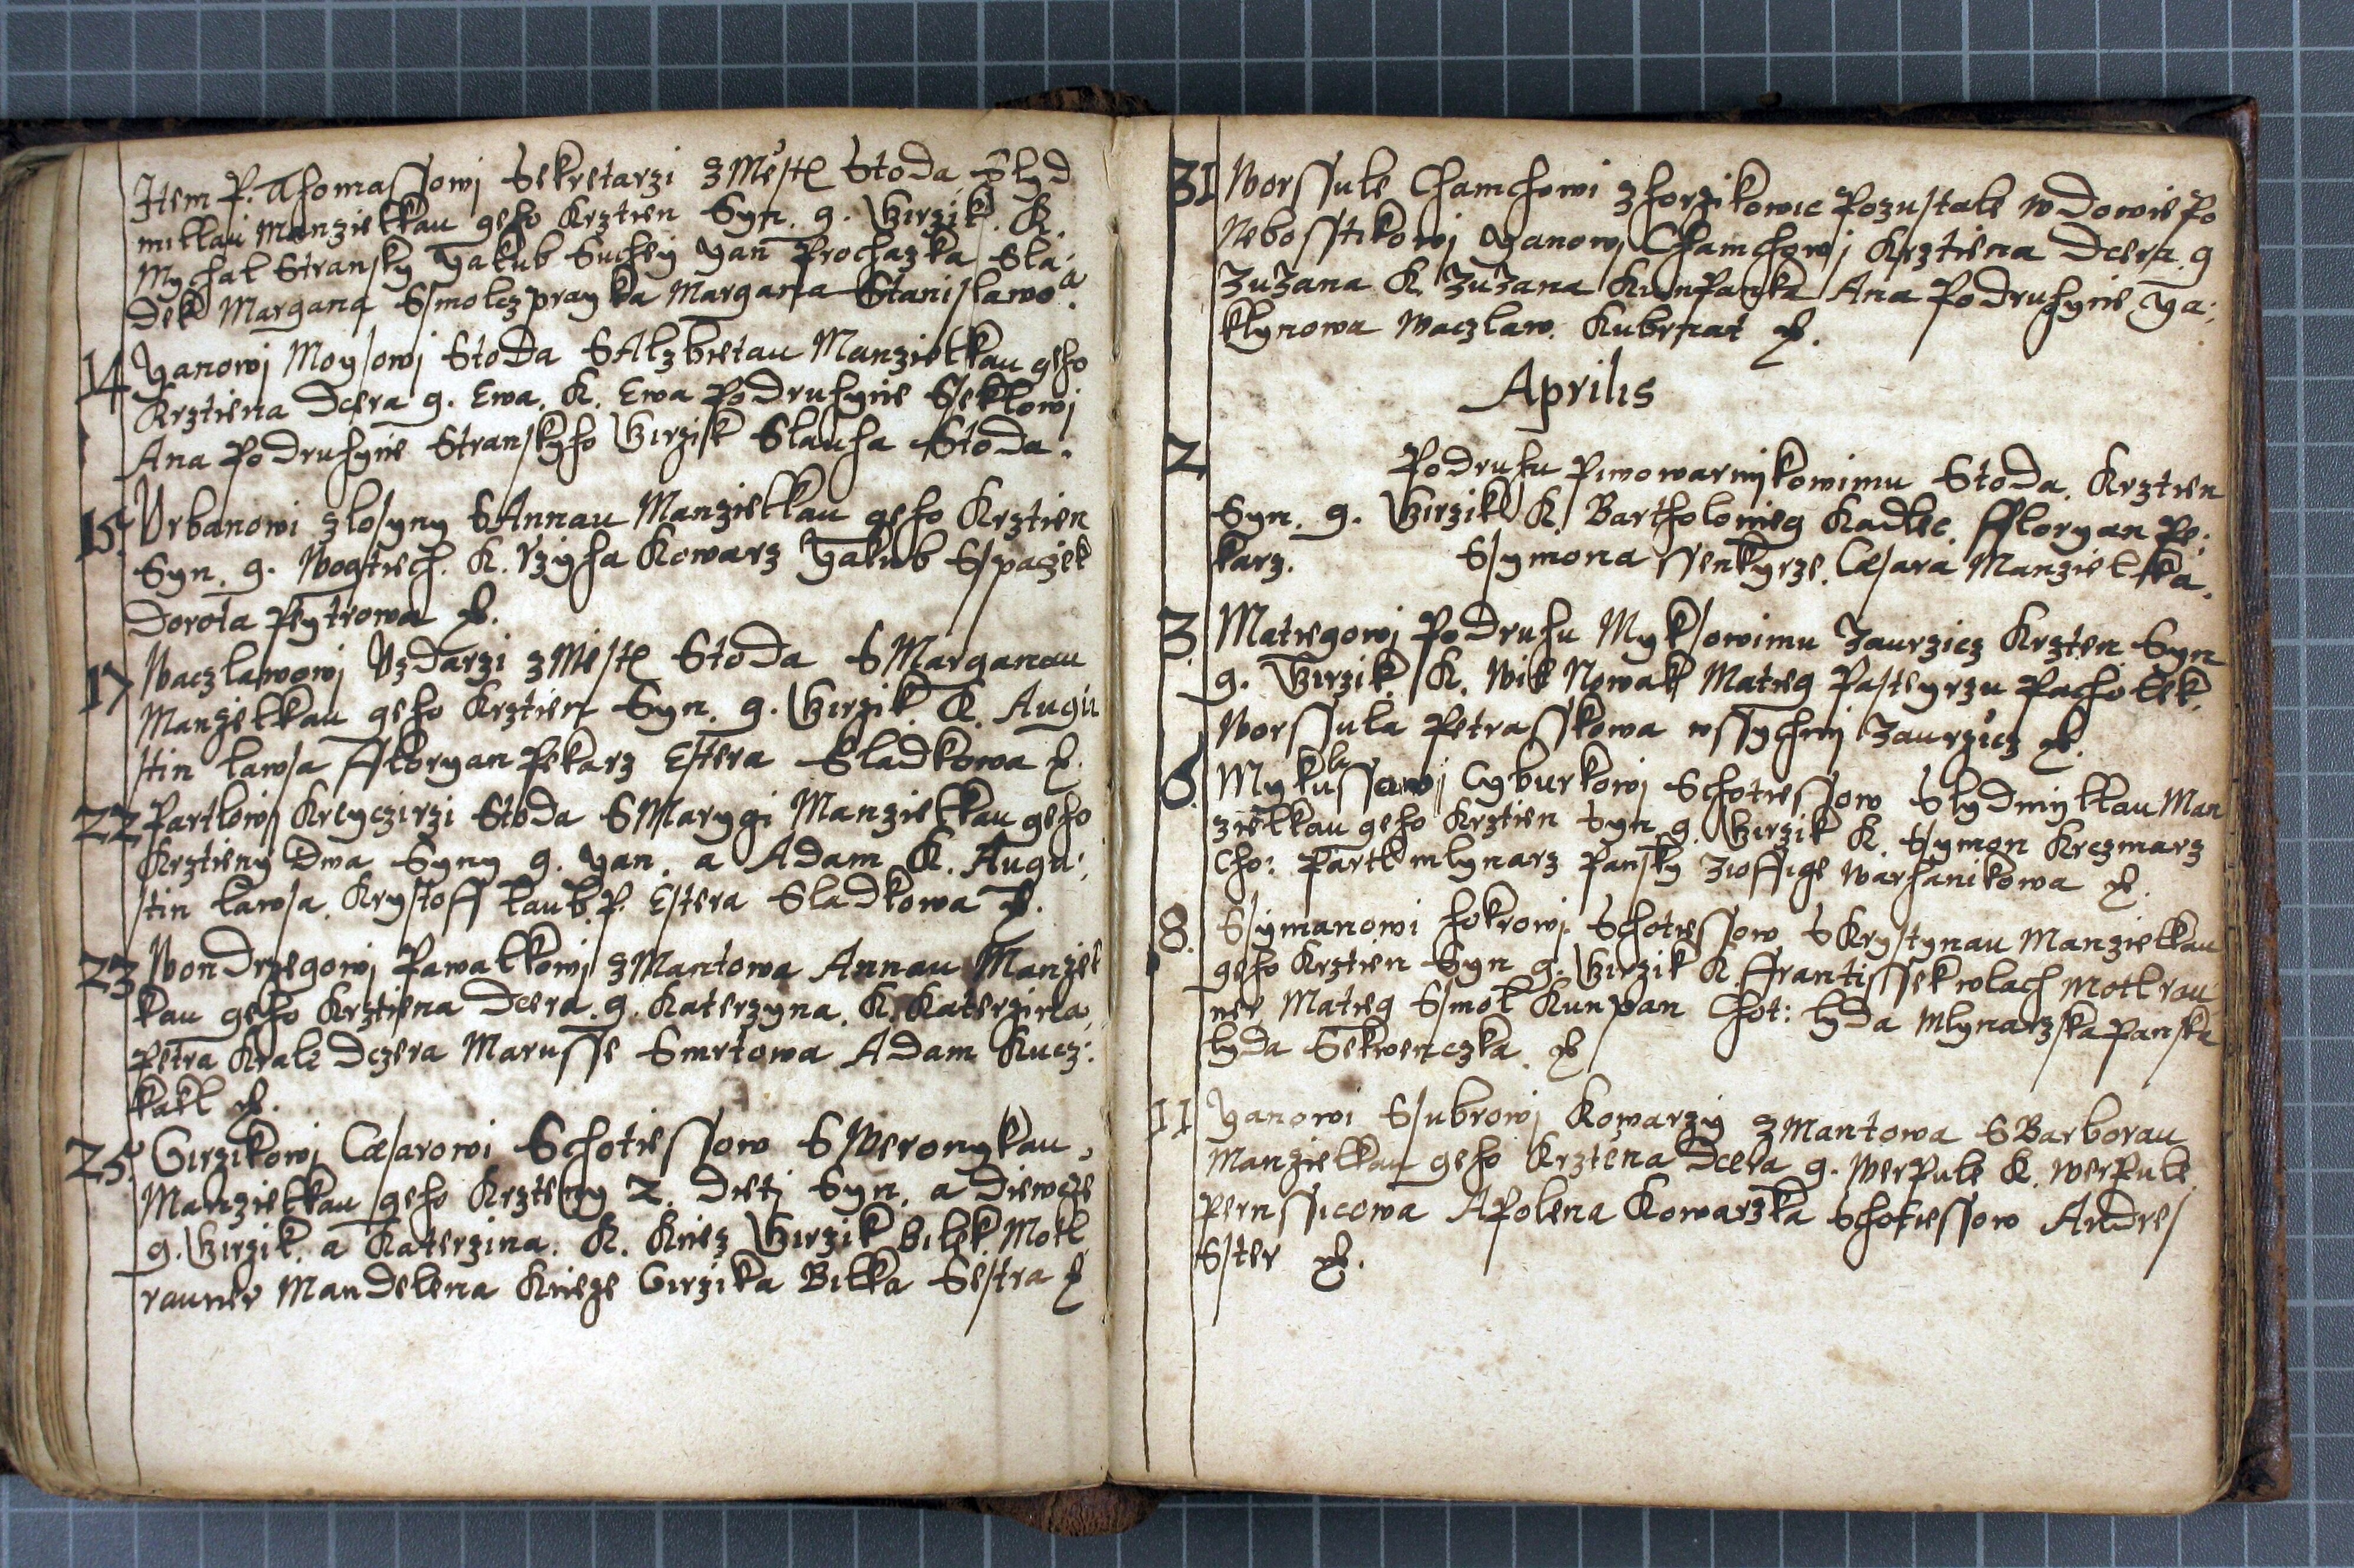 Item P. Thomassowj Sekretarzi z Mesta Stoda S lyd
millau Manzielkau geho Krztien Syn. g. Girzik. K.
Mychal Stransky Yakub Suchey Yan Prochazka Sla:
dek Margana Smolczprayka Margana Stanislawowa.
14 Yanowj Moysowj Stoda S Alzbietau Manzielkau geho
Krztiena Dcera g. Ewa. K. Ewa Podruhynie Sseklowj
Ana Podruhynie Stranskyho Girzik Slauha Stoda.
15. Urbanowi z losyny S Annau Manzielkau geho Krztien
Syn. g. Wogtiech. K. Rzyha Kowarz Yakub Sspaczek
Dorota Peytrowa
17 Waczlawowj Uzdarzi z Mesta Stoda S Marganau
Manzelkau geho Krztien Syn. g. Girzik. K. Augu
stin Lawsa Ffloryan Pekarz Estera Sladkowa
22 Partlowj Kreyczirzi Stoda S Marygi Manzielkau geho
Krztieny Dwa Syny g. Yan. a Adam K. Augu:
stin Lawsa. Krystoff Laub. P. Estera Sladkowa
23 Wondrzegowj Pawalkowj z Mantowa Annau Manzel
kau geho Krztiena Dcera. g. Katerzyna. K. Katerzina
Petra Krale Dczera Marusse Smrtowa Adam Kucz:
kakl
25. Girzikowj Caesarowi S Chotiessow S Weronykau
Manzielkau geho Krzteny 2. Dietj Syn. a Diewcze
g. Girzik. a Katerzina. K. Kniez Girzik Bilek. Motl
rauner Mandelena Knieze Girzika Bilka Sestra
31 Worssule Chamchowi z horzikowic Pozustale Wdowie Po
Nebosstikowj Yanowj Chamchowj Krztiena Dcera. g
Zuzana K. Zuzana Kunpanka Ana Podruhynie Ya:
klynowa Waczlaw. Kubrnat
Aprilis
2 Podruhu Piwowarnjkowimu Stoda. Krztien
Syn. g. Girzik K. Bartholomeg Kadlec. Ffloryan Pe:
karz. Symona Ssenkyrze. Caesara Manzielka.
3. Matiegowj Podruhu Myksowimu Zaurzicz Krzten Syn
g. Girzik. K. Wit Nowak Matieg Pasteyrzu Pacholek.
Worssula Petrasskowa wssychnj Zaurzicz
6. Mykulassowj Cyburkowj S Chotiessow S lydmyllau Man
zielkau geho Krztien Syn g. Girzik K. Symon Krczmarz
Cho: Partl mlynarz Pansky Zioffige Warhanikowa
8. Symanowi hokrowj. S Chotiessow S Krystynau Manzielkau
geho Krztien Syn g. Girzik K. Ffrantissek wlach Motlrau
ner Matieg Smol Kunpan Chot: lyda Mlynarzska Panska
lyda Sekwenczka.
11 Yanowi Ssubrowj Kowarziy z Mantowa S Barborau
Manzielkau geho Krztena Dcera g. Werpule K. Werpule
Pernssicowa Apolena Kowarzka S Chotiessow Andres
Sster